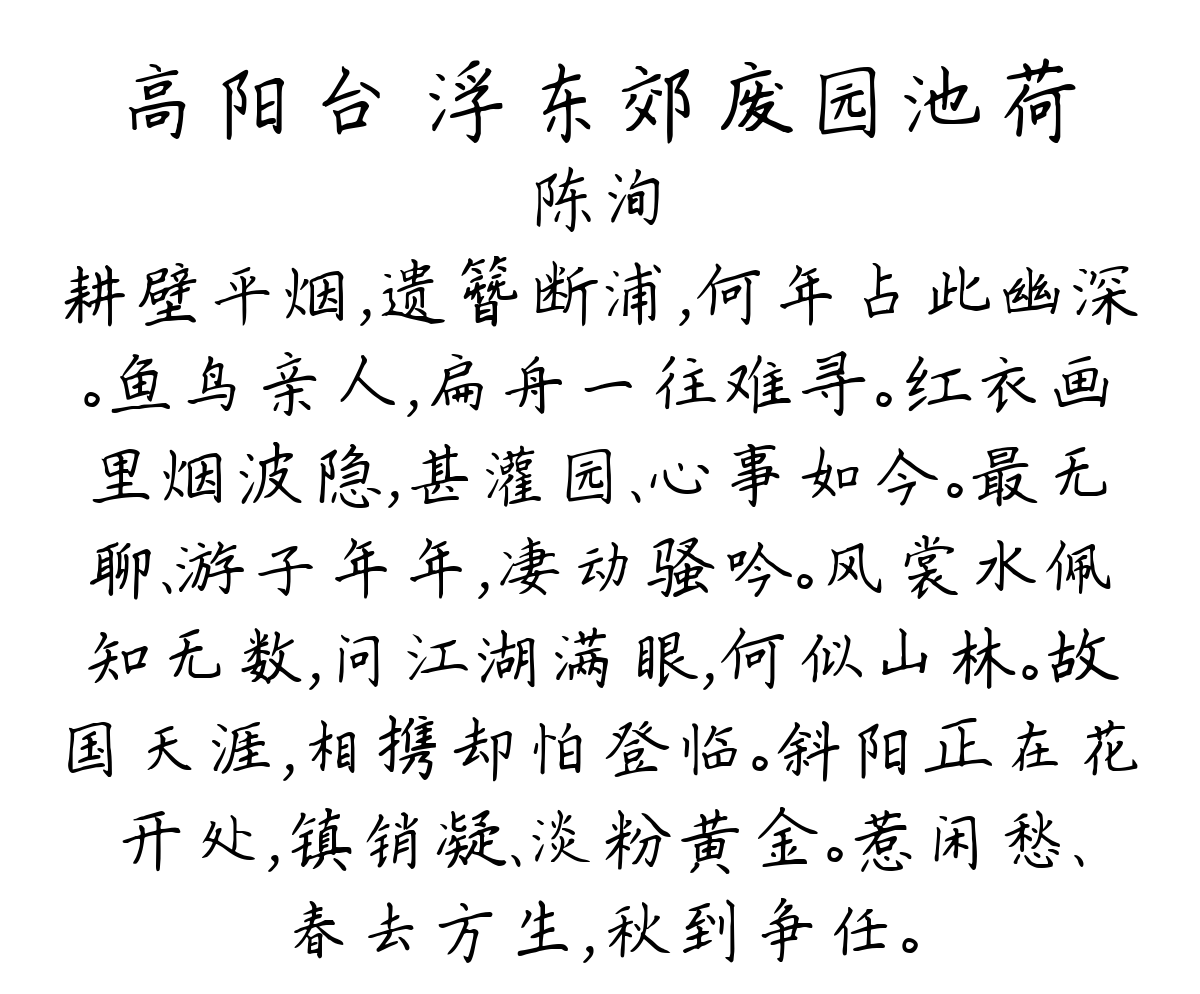 高阳台 浮东郊废园池荷
陈洵
耕壁平烟,遗簪断浦,何年占此幽深
。鱼鸟亲人,扁舟一往难寻。红衣画
里烟波隐,甚灌园、心事如今。最无
聊、游子年年,凄动骚吟。风裳水佩
知无数,问江湖满眼,何似山林。故
国天涯,相携却怕登临。斜阳正在花
开处,镇销凝、淡粉黄金。惹闲愁、
春去方生,秋到争任。